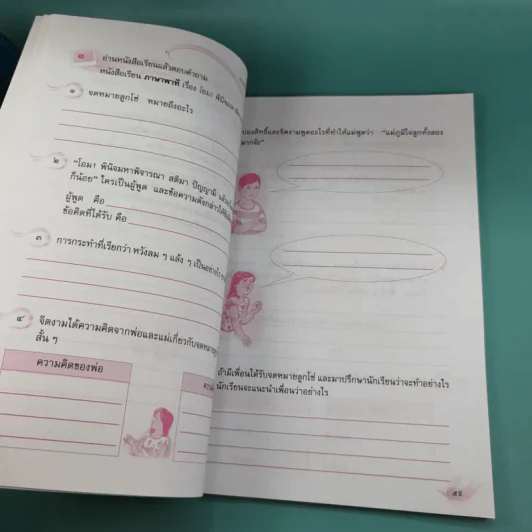 ๑
อ่านหนังสือเรียนแล้วตอบคำถาม
หนังสือเรียน ภาษาพาที เรื่อง โอม! พินิจมหา
๑ จดหมายลูกโซ่ หมายถึงอะไร
๒ "โอม! พินิจมหาพิจารณา สติมา ปัญญามี แล้ว
ก็น้อย" ใครเป็นผู้พูด และข้อความดังกล่าวให้
ผู้พูด คือ
ข้อคิดที่ได้รับ คือ
๓ การกระทำที่เรียกว่า หวังลม ๆ แล้ง ๆ เป็นอย่างไร
๔ จิตงามได้ความคิดจากพ่อและแม่เกี่ยวกับจดหมาย
สั้น ๆ
ความคิดของพ่อ
ปองสิทธิ์และจิตงามพูดอะไรที่ทำให้แม่พูดว่า "แม่ภูมิใจลูกทั้งสอง
มากจ้ะ"
ถ้ามีเพื่อนได้รับจดหมายลูกโซ่ และมาปรึกษานักเรียนว่าจะทำอย่างไร
นักเรียนจะแนะนำเพื่อนว่าอย่างไร